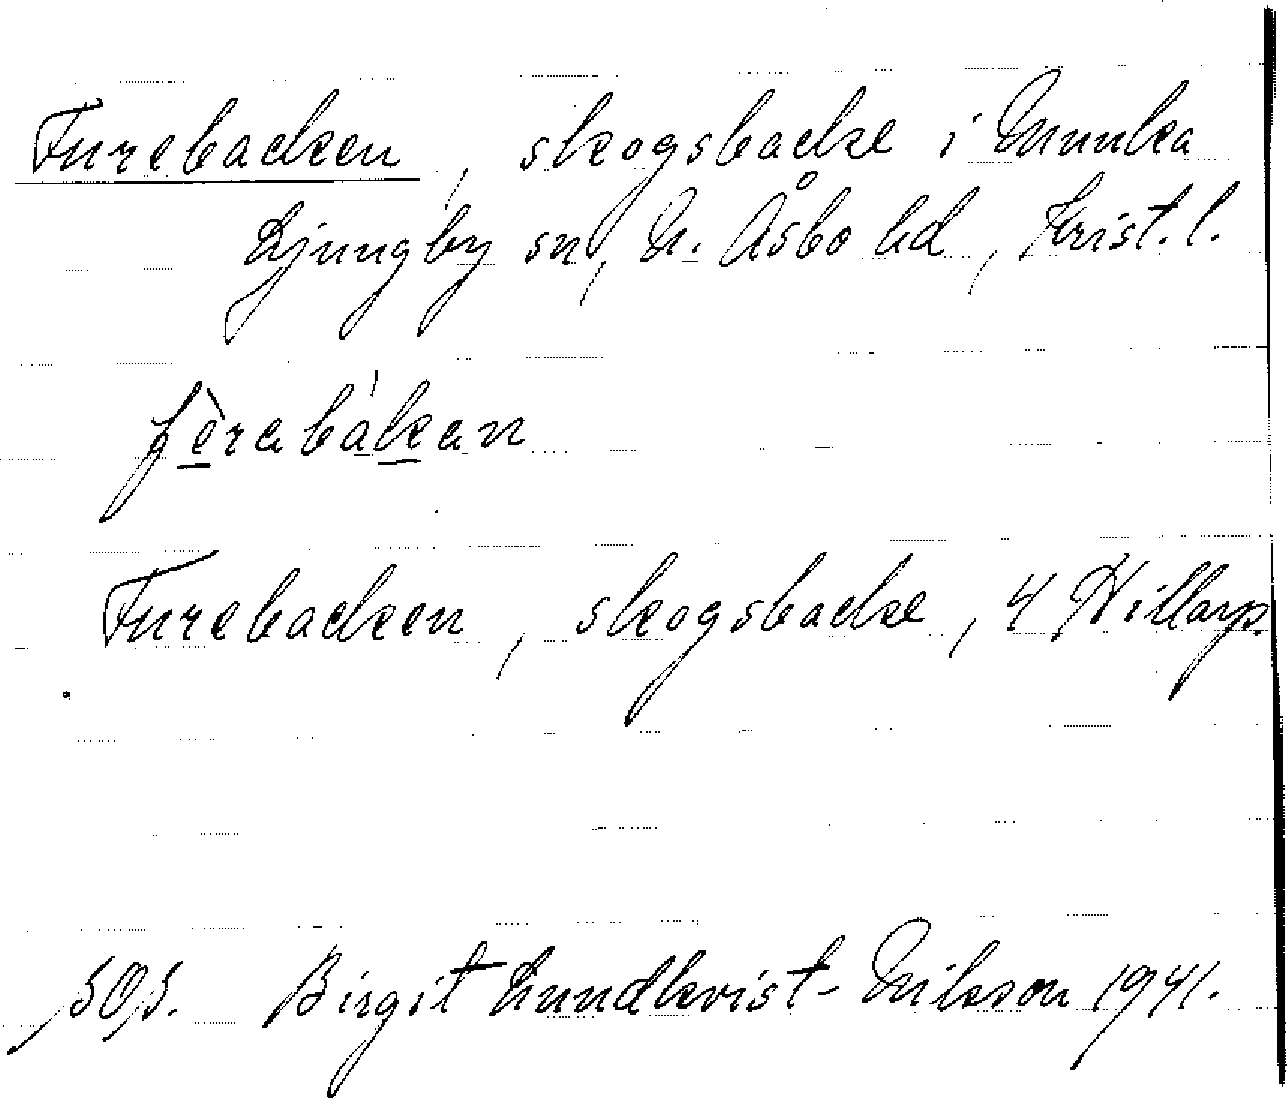 Furebacken, skogsbacke i Munka
Ljungby sn, N. Åsbo hd, Krist. l.
fèrabákan
Furebacken, skogsbacke, 4 Hillarp.
Birgit Lundkvist-Nilsson 1941.